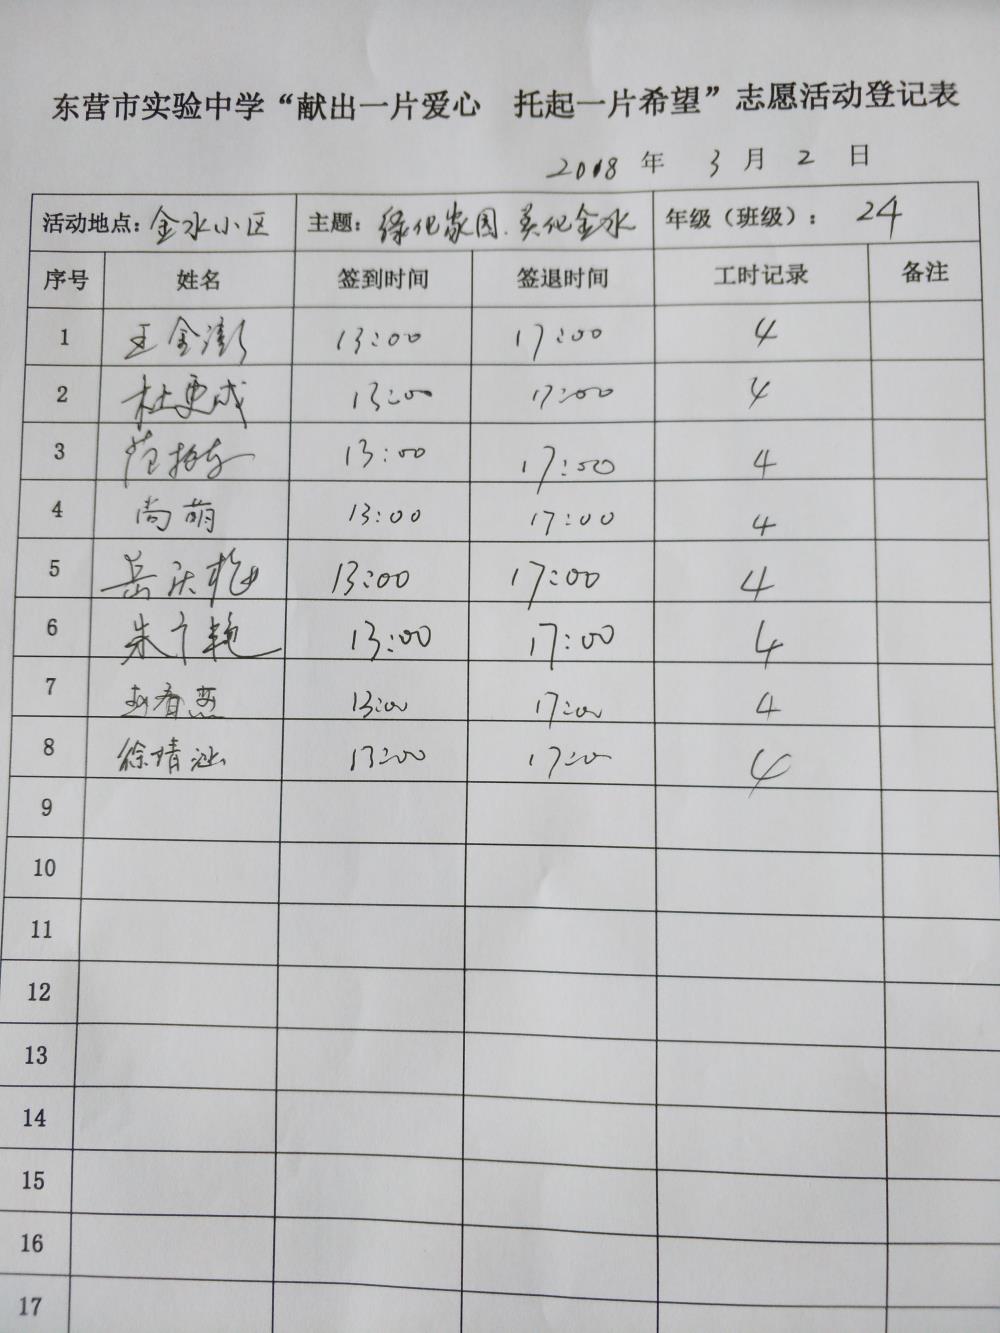 东营市实验中学“献出一片爱心 托起一片希望”志愿活动登记表
2018 年 3 月 2 日
活动地点: 金水小区 主题: 绿化家园.美化金水 年级（班级）: 24
序号 姓名 签到时间 签退时间 工时记录 备注
1 王金澎 13:00 17:00 4
2 杜更成 13:00 17:00 4
3 13:00 17:00 4
4 尚萌 13:00 17:00 4
5 岳庆梅 13:00 17:00 4
6 朱 艳 13:00 17:00 4
7 赵春燕 13:00 17:00 4
8 徐靖涵 13:00 17:00 4
9
10
11
12
13
14
15
16
17